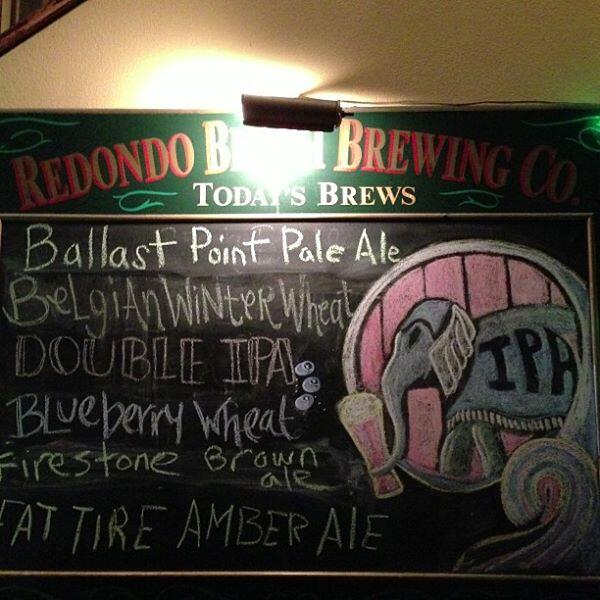 REDONDO BREWING CO.
TODAY'S BREWS
Ballast Point Pale Ale
BeLgiAn WiNter Wheat
DOUBLE IPA
BLueberry Wheat
Firestone Brown
ale
FAT TIRE AMBER AlE
IPA